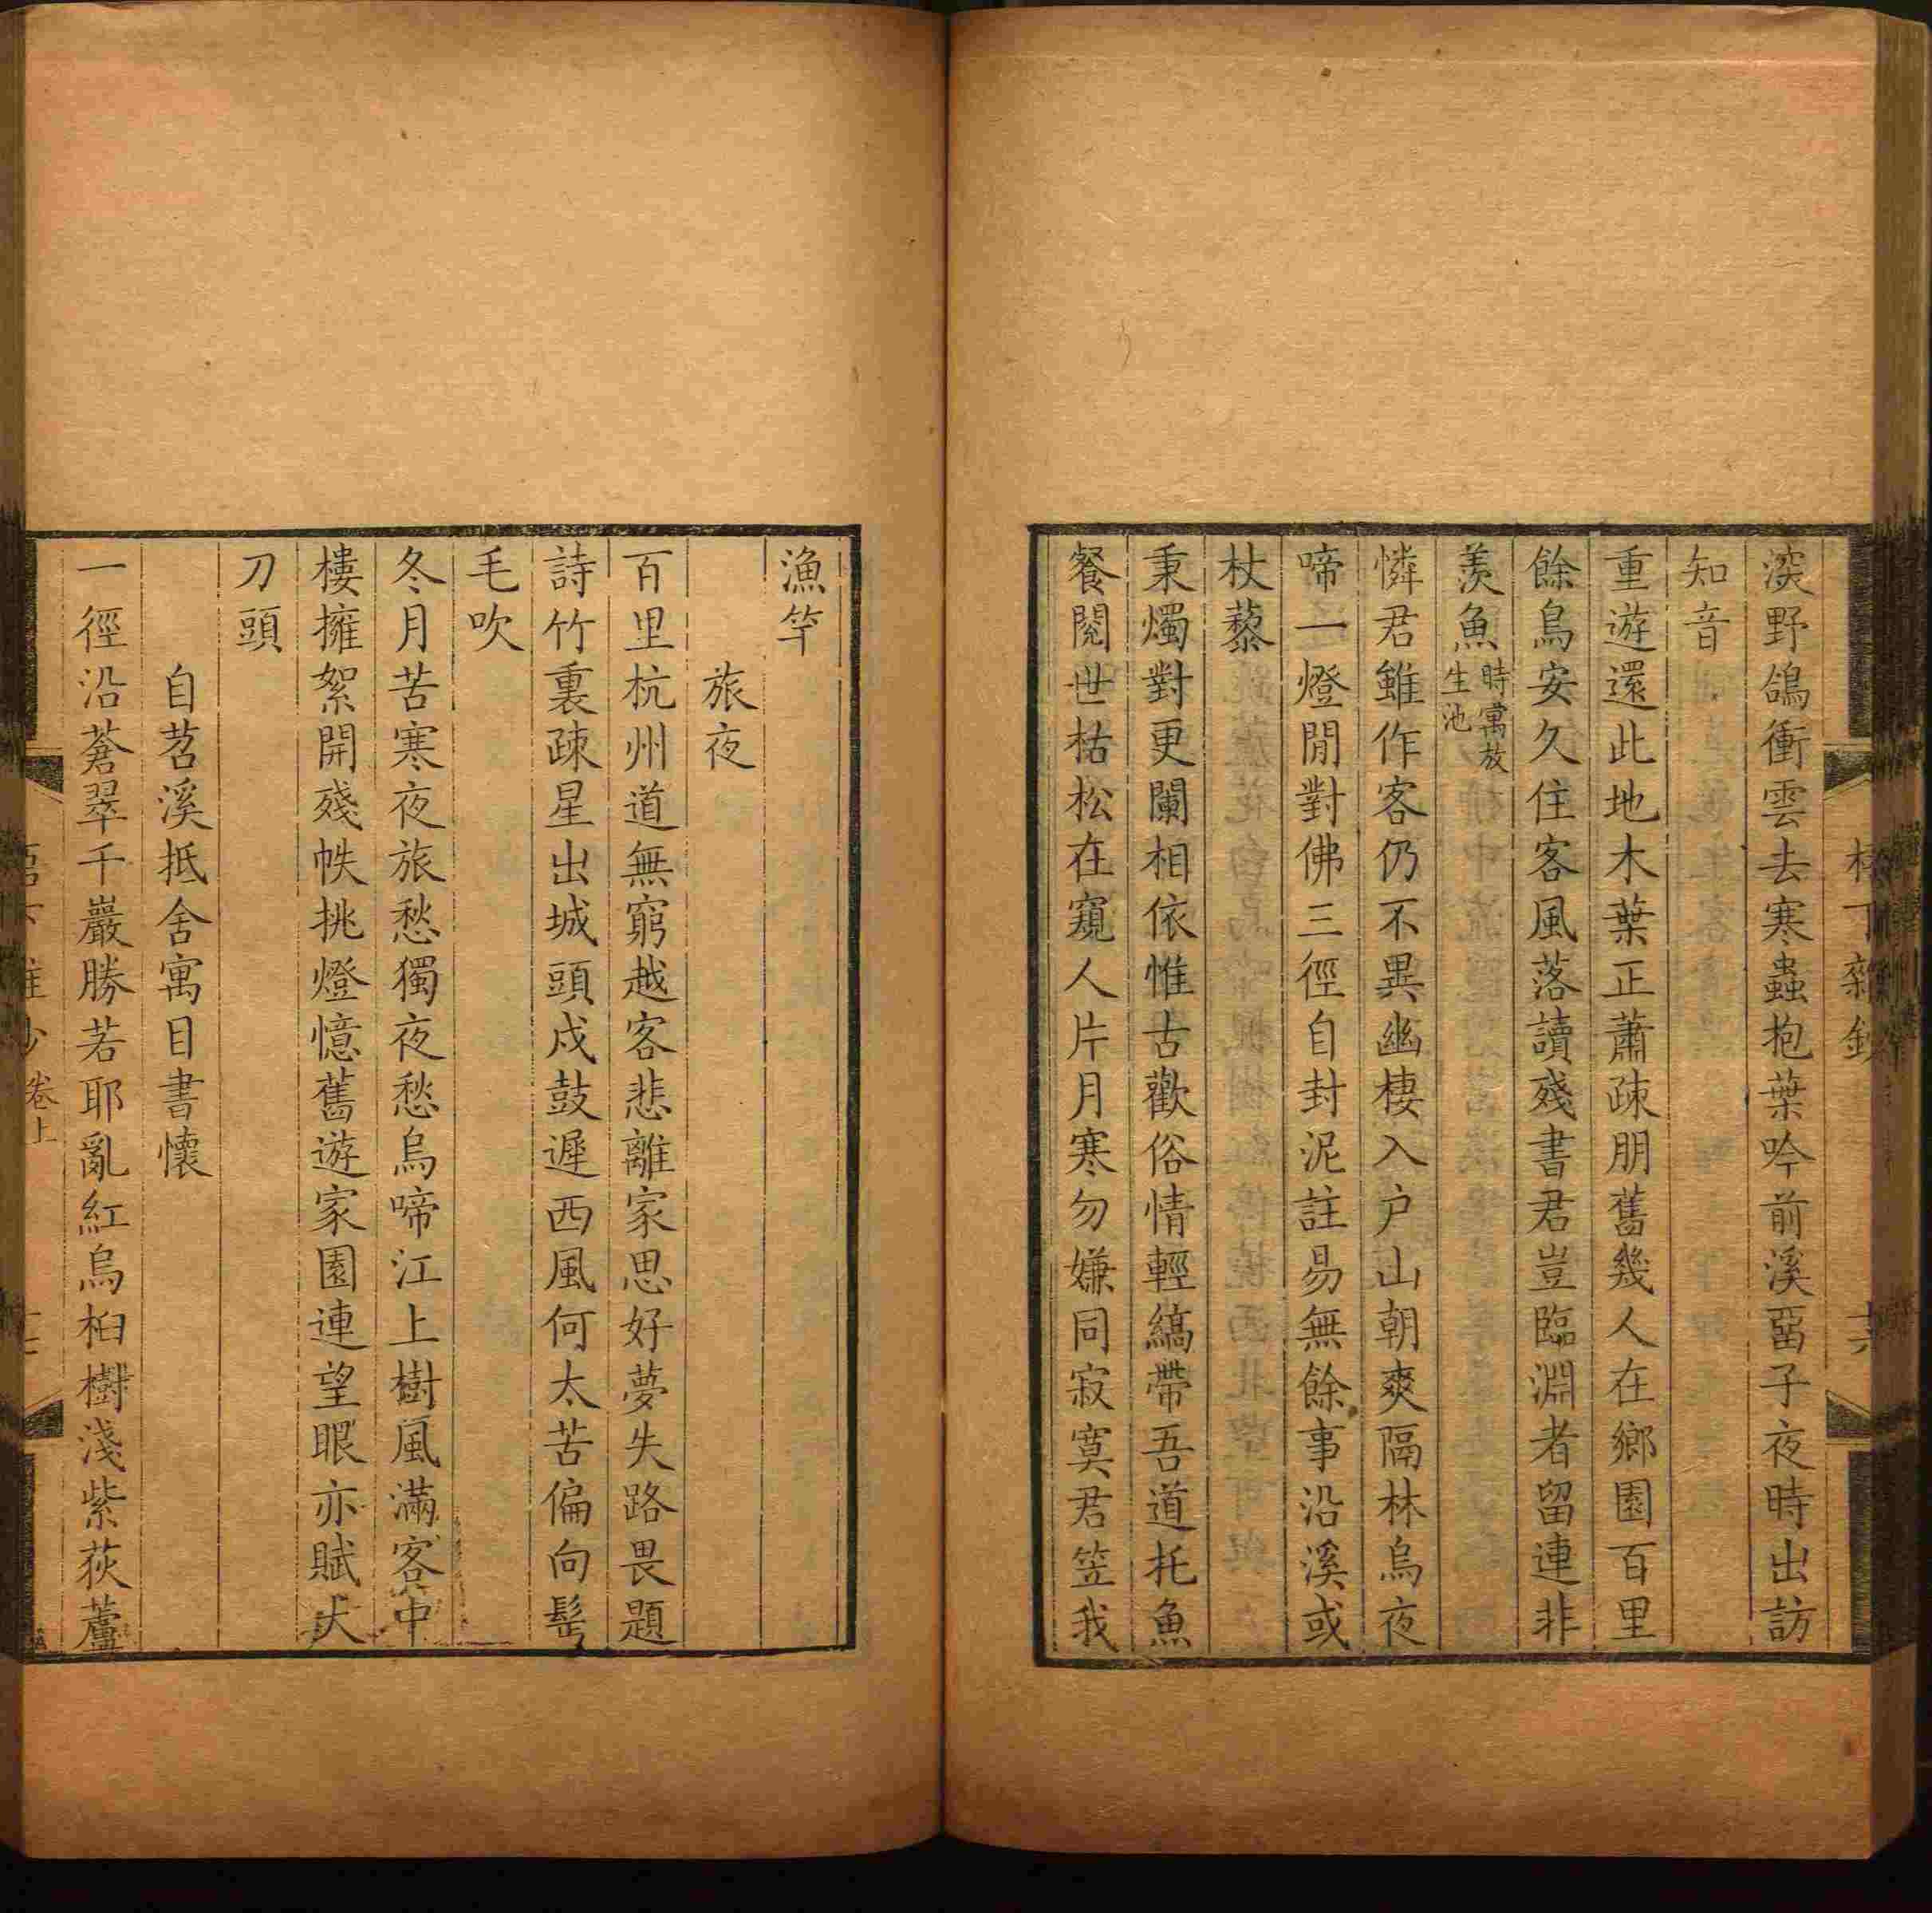 深野鴿衝雲去寒蟲抱葉吟前溪啚子夜時出訪
知音
重遊還此地木葉正蕭疎朋舊幾人在鄉園百里
餘鳥安久住客風落讀殘書君豈臨淵者留連非
羨魚時寓放生池
憐君雖作客仍不異幽棲入户山朝爽隔林烏夜
啼一燈閒對佛三徑自封泥註易無餘事沿溪或
杖藜
秉燭對更闌相依惟古歡俗情輕縞帶吾道托魚
餐閱世枯松在窺人片月寒勿嫌同寂寞君笠我
漁竿
旅夜
百里杭州道無窮越客悲離家思好夢失路畏題
詩竹裏疎星出城頭戍鼓遲西風何太苦偏向髩
毛吹
冬月苦寒夜旅愁獨夜愁烏啼江上樹風滿客中
樓擁絮開殘帙挑燈憶舊遊家園連望眼亦賦大
刀頭
自苕溪抵舍寓目書懷
一徑沿蒼翠千巖勝若耶亂紅烏桕樹淺紫荻蘆
卷上